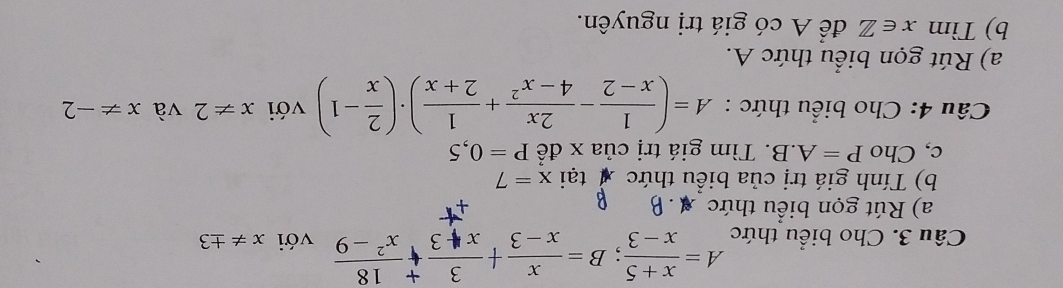 Câu 3. Cho biểu thức A = \frac{x+5}{x-3}; B = \frac{x}{x-3} + \frac{3}{x+3} + \frac{18}{x²-9} với x ≠ ±3
a) Rút gọn biểu thức B
b) Tính giá trị của biểu thức B tại x = 7
c, Cho P = A.B. Tìm giá trị của x để P = 0,5
Câu 4: Cho biểu thức : A = (\frac{1}{x-2} - \frac{2x}{4-x²} + \frac{1}{2+x}).(\frac{2}{x} - 1) với x ≠ 2 và x ≠ -2
a) Rút gọn biểu thức A.
b) Tìm x ∈ ℤ để A có giá trị nguyên.